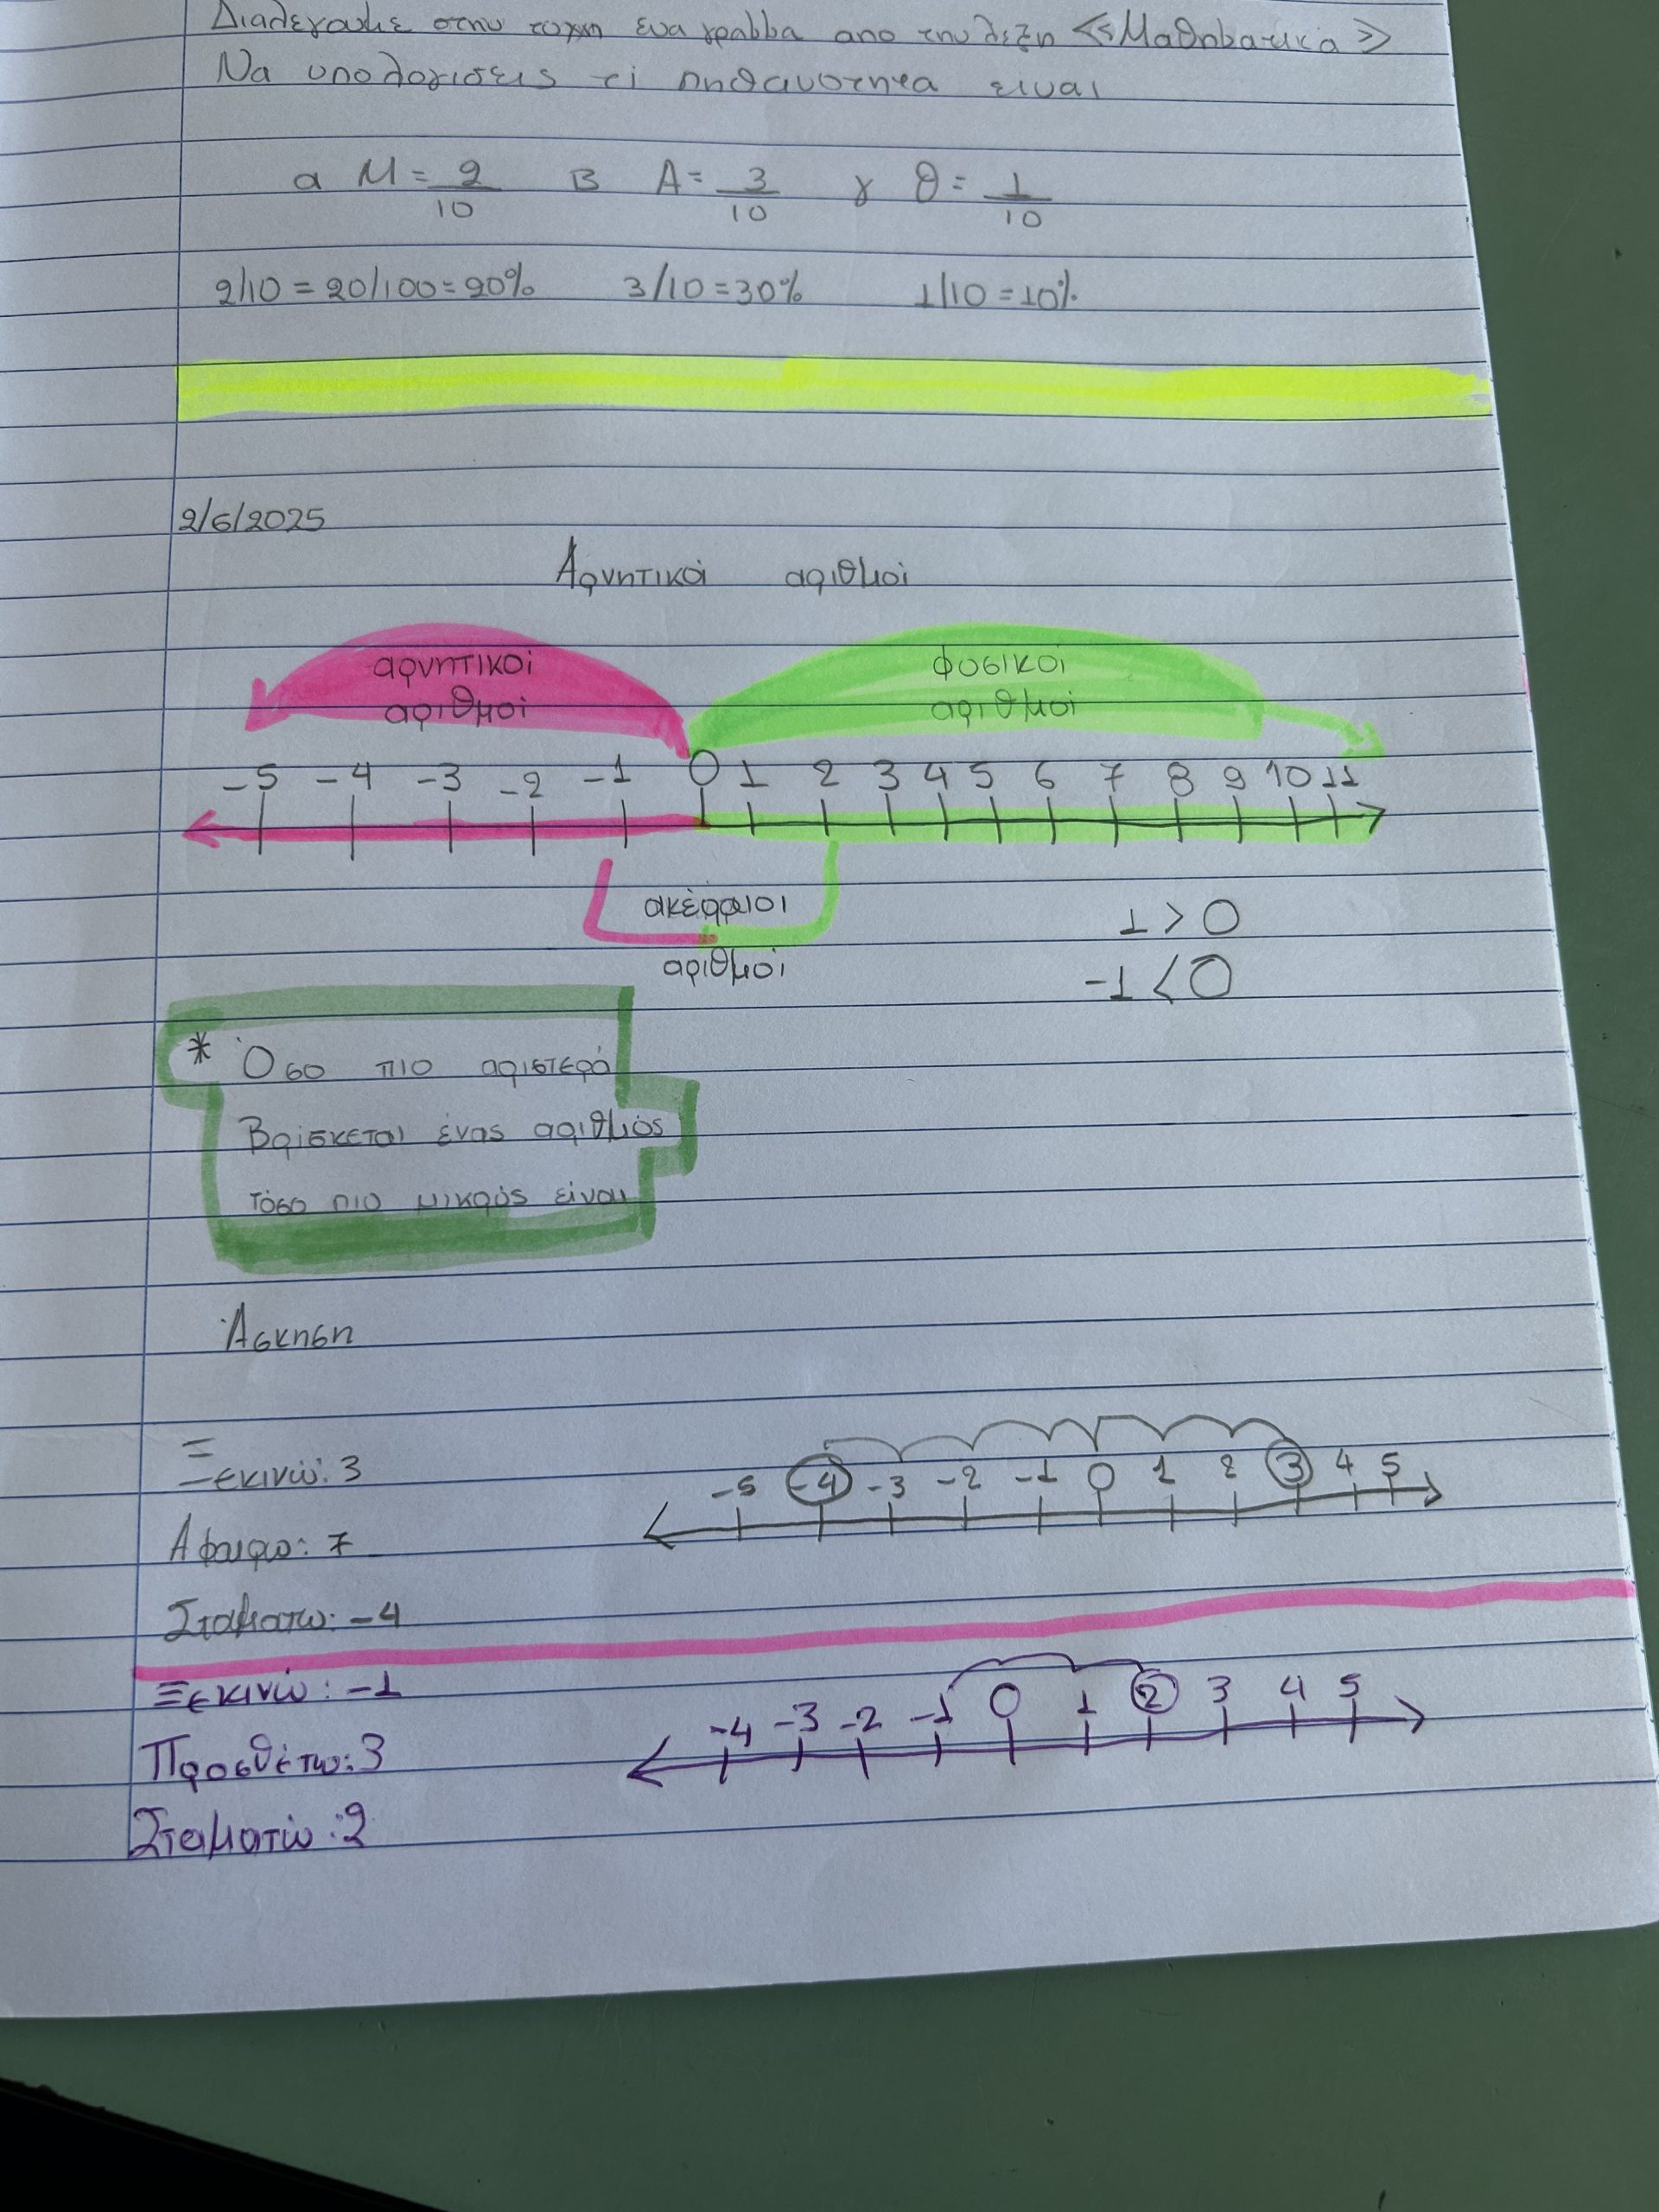 Διαλεγουμε στην τυχη ενα γραμμα απο την λεξη <<Μαθηματικα>>
Να υπολογισεις τι πηθανοτητα ειναι
α Μ = 2/10 Β Α = 3/10 γ Θ = 1/10
2/10 = 20/100 = 20% 3/10 = 30% 1/10 = 10%
2/6/2025
Αρνητικοί αριθμοί
αρνητικοί φυσικοί
αριθμοί αριθμοί
-5 -4 -3 -2 -1 0 1 2 3 4 5 6 7 8 9 10 11
ακέραιοι
αριθμοί
1 > 0
-1 < 0
* Όσο πιο αριστερά
Βρίσκεται ένας αριθμός
τόσο πιο μικρός είναι
Άσκηση
Ξεκινώ: 3
-5 -4 -3 -2 -1 0 1 2 3 4 5
Αφαιρω: 7
Σταματω: -4
Ξεκινώ: -1
-4 -3 -2 -1 0 1 2 3 4 5
Προσθέτω: 3
Σταματώ: 2